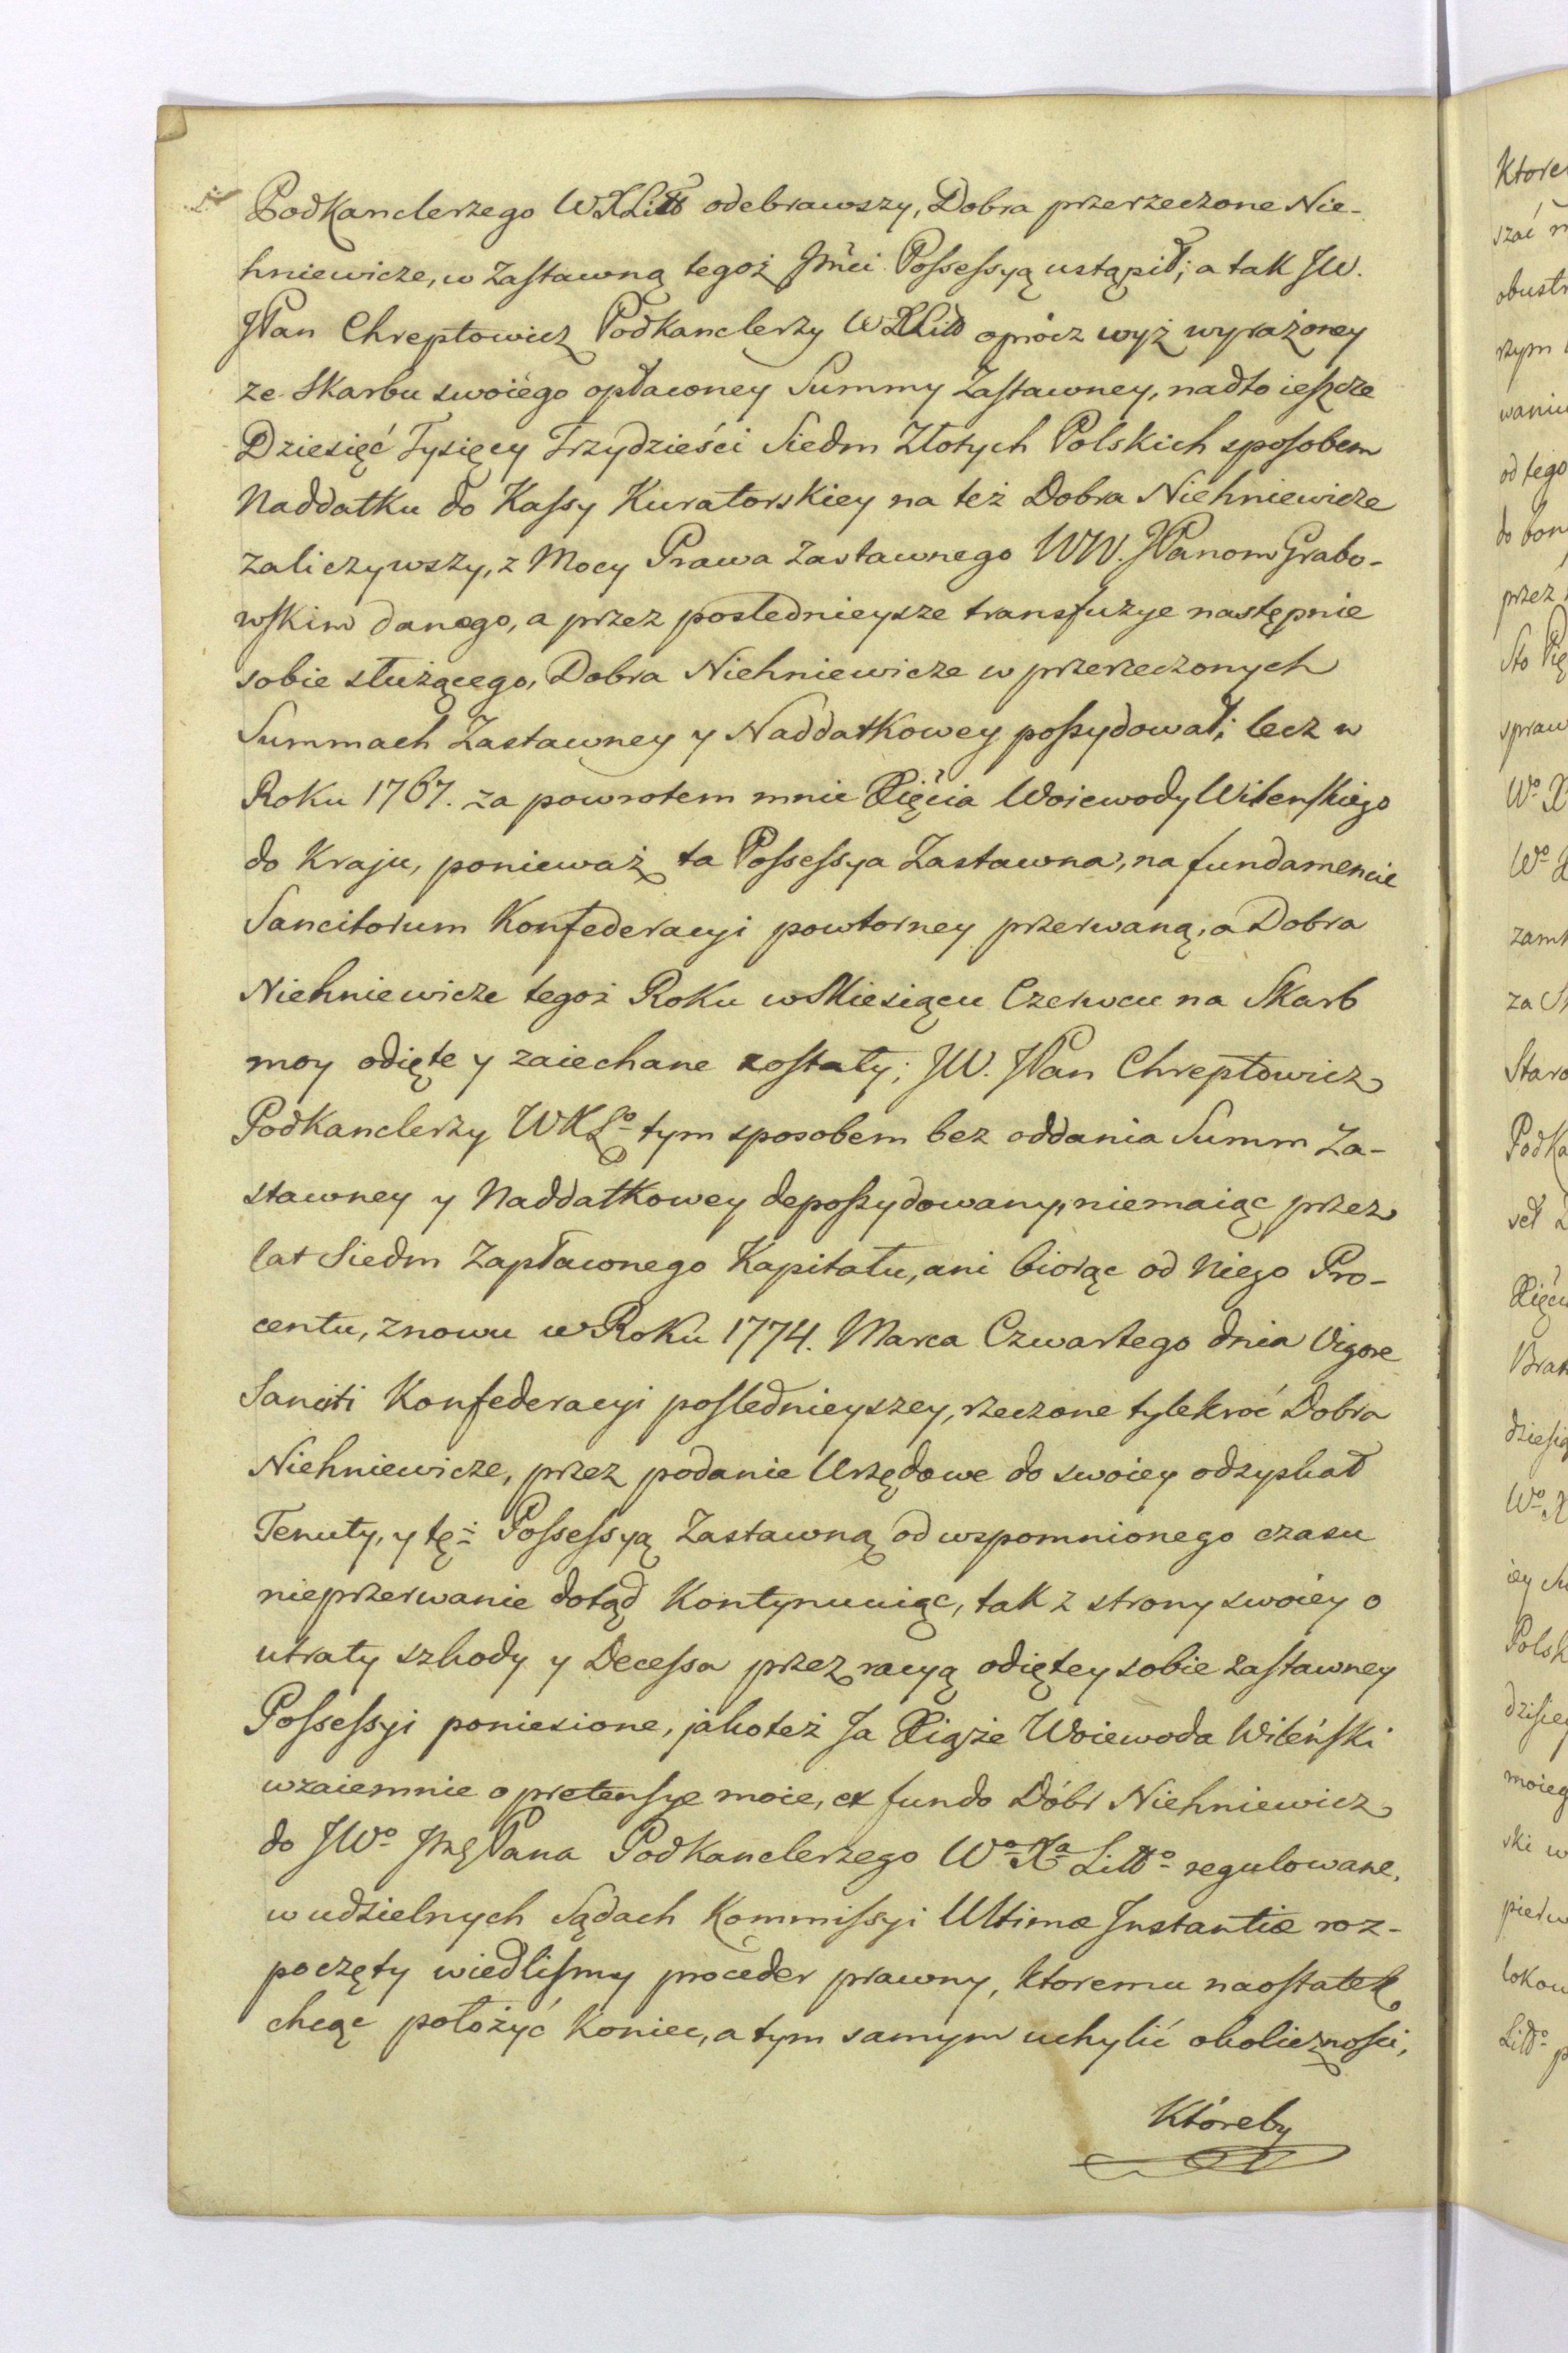 Podkanclerzego WXLitt odebrawszy, Dobra przerzeczone Nie-
hniewicze, w zastawną tegoż Jmći Possessyą ustąpił; a tak JW.
JPan Chreptowicz Podkanclerzy WXLitt oprócz wyż wyrażoney
ze Skarbu swoiego opłaconey Summy Zastawney, nadto ieszcze
Dziesięć Tysięcy Trzydzieści Siedm Złotych Polskich sposobem
Naddatku do Kassy Kuratorskiey na też Dobra Niehniewicze
zaliczywszy, z Mocy Prawa zastawnego WW. JPanom Grabo-
wskim danego, a przez poslednieysze transfuzye następnie
sobie służącego, Dobra Niehniewicze w przerzeczonych
Summach Zastawney y Naddatkowey possydował; lecz w
Roku 1767. za powrotem mnie Xięćia Woiewody Wilenskiego
do Kraju, ponieważ ta Possessya Zastawna, na fundamencie
Sancitorum Konfederacyi powtorney przerwaną, a Dobra
Niehniewicze tegoż Roku w Miesiącu Czerwcu na Skarb
moy odięte y zaiechane zostały; JW. JPan Chreptowicz
Podkanclerzy WXLo tym sposobem bez oddania Summ Za-
stawney y Naddatkowey depossydowany, niemaiąc przez
lat Siedm Zapłaconego Kapitału, ani biorąc od Niego Pro-
centu, znowu w Roku 1774. Marca Czwartego dnia Vigore
Sanciti Konfederacyi poslednieyszey, rzeczone tylekroć Dobra
Niehniewicze, przez podanie Urzędowe do swoiey odzyskał
Tenuty, y tęż Possessyą Zastawną od wspomnionego czasu
nieprzerwanie dotąd Kontynuuiąc, tak z strony swoiey o
utraty szkody y Decessa przez racyą odiętey sobie zastawney
Possessyi poniesione, jakoteż Ja Xiąże Woiewoda Wileński
wzaiemnie o pretensye moie, ex fundo Dóbr Niehniewicz
do JWo Pana Podkanclerzego Wo Xa Litto regulowane,
w udzielnych Sądach Kommissyi Ultimæ Instantiæ roz-
poczęty wiedlismy proceder prawny, ktoremu naostatek
chcąc położyć koniec, a tym samym uchylić okoliczności,
Któreby